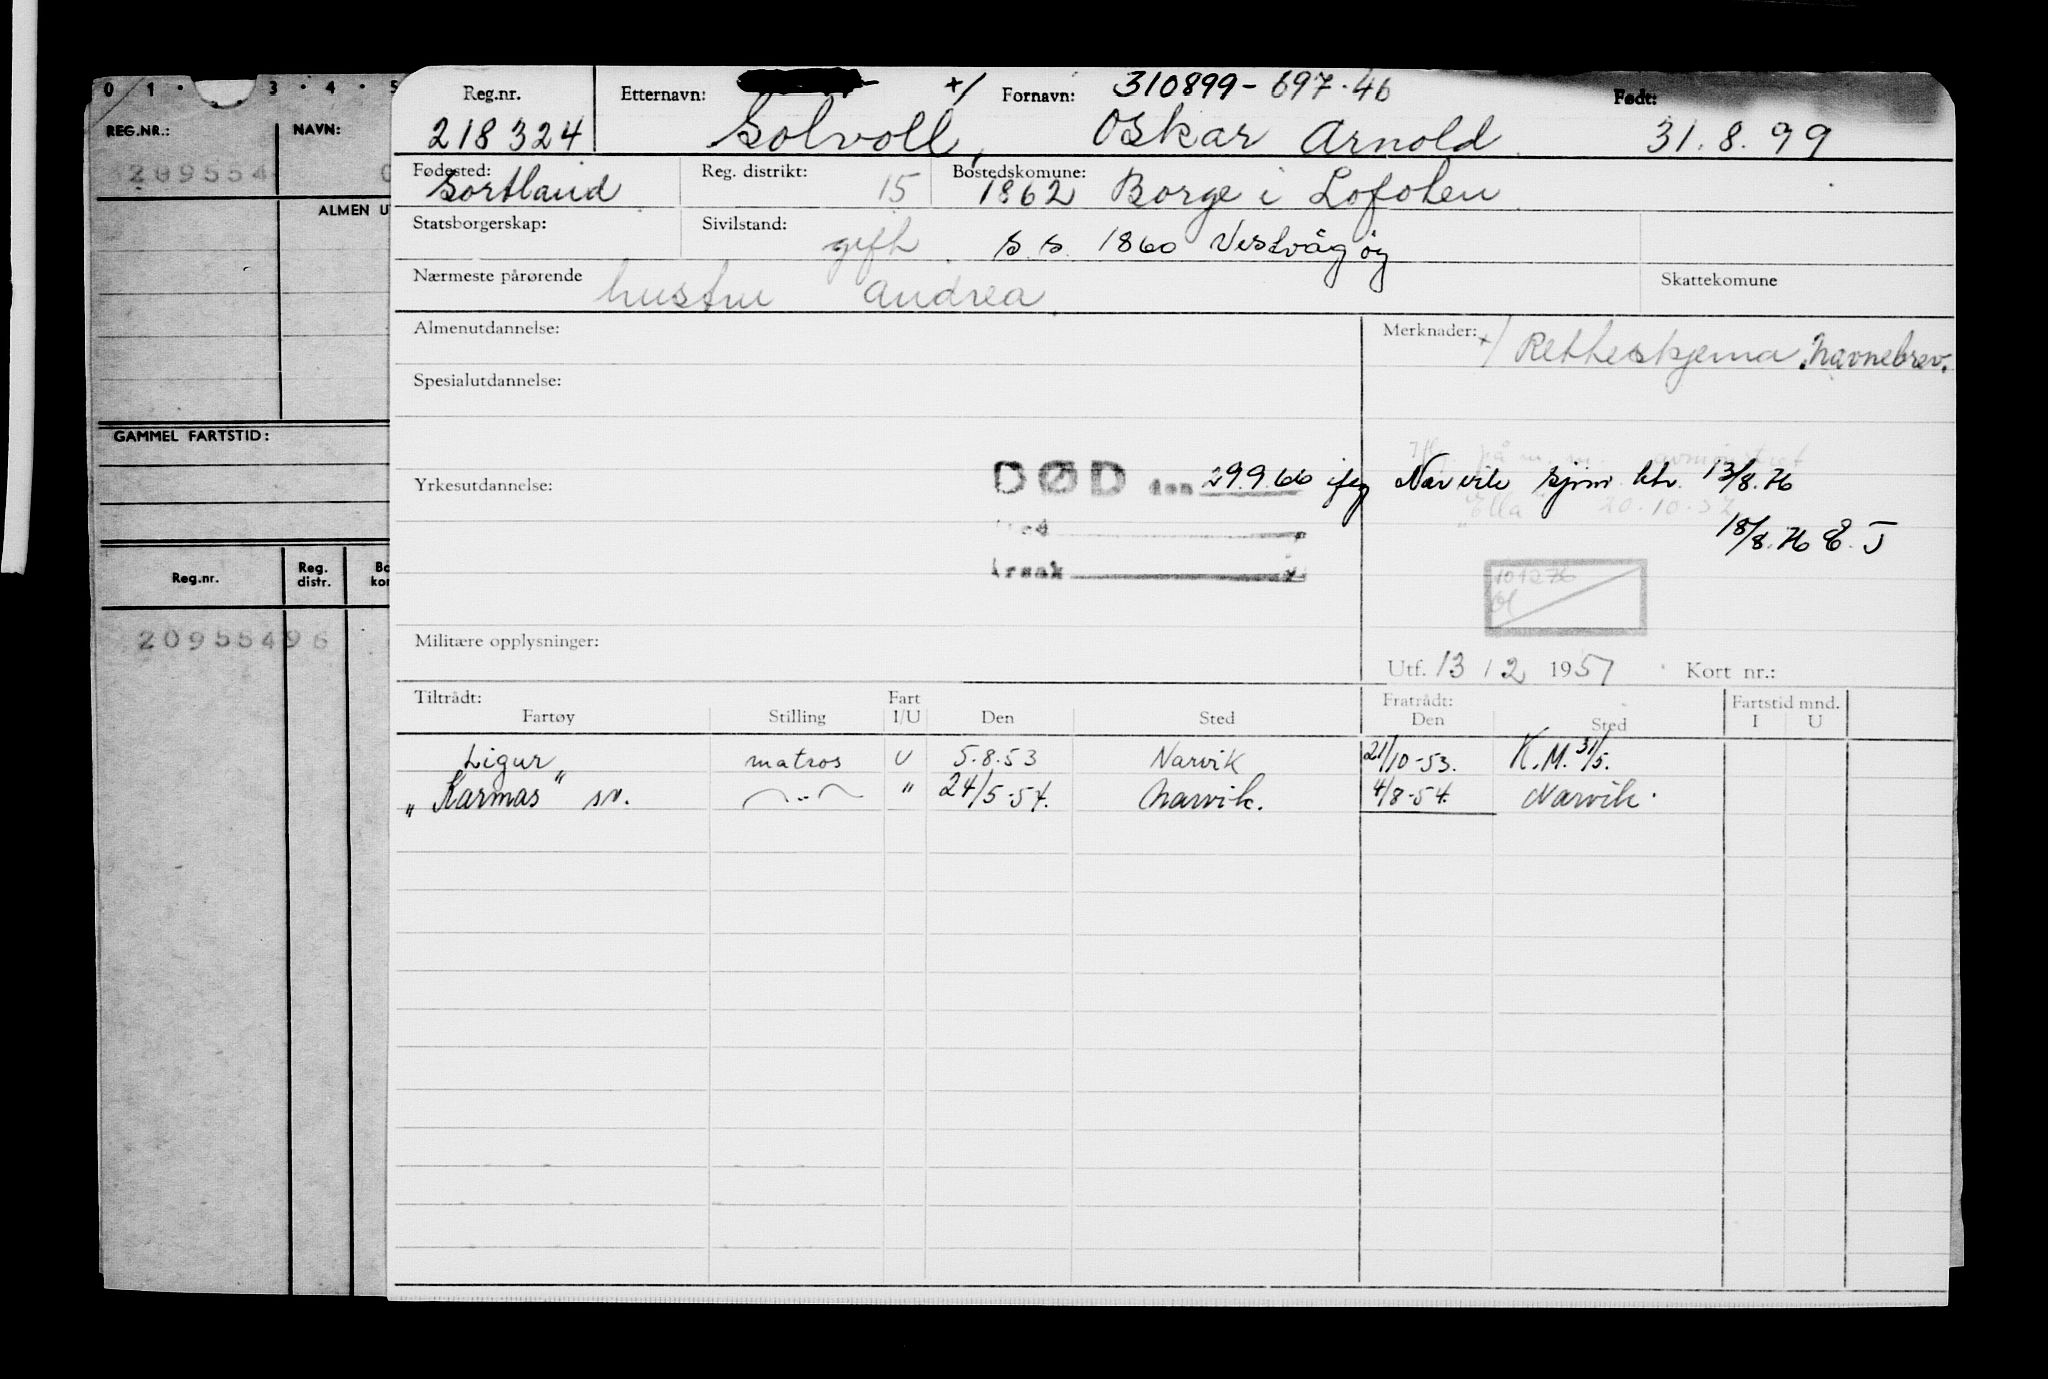 0 1 · 3 · 4 · 5
REG.NR.: NAVN:
209554
ALMEN U
GAMMEL FARTSTID:
Reg.nr. Reg. distr.
20955496
Reg.nr. Etternavn: +/ Fornavn: 310899-697·46 Født:
218324 Solvoll, Oskar Arnold. 31.8.99
Fødested: Reg. distrikt: Bostedskomune:
Sortland 15 1862 Borge i Lofoten
Statsborgerskap: Sivilstand:
gift s.s. 1860 Vestvågøy
Nærmeste pårørende Skattekomune
hustru Andrea
Almenutdannelse: Merknader:
+/ Retteskjema, navnebrev.
Spesialutdannelse:
Yrkesutdannelse: DØD den 29.9.66 iføg Narvik sjøm. ktr. 13/8.76
"Ella" 20.10.52
18/8.76 E.J
Årsak
101276
Militære opplysninger:
Utf. 13 / 2 1951 Kort nr.:
Tiltrådt: Fart Fratrådt: Fartstid mnd.
Fartøy Stilling I/U Den Sted Den Sted I U
Ligur matros U 5.8.53 Narvik 21/10-53. K.M. 31/5.
"Karmas" sv. —"— " 24/5-54. Narvik. 4/8-54. Narvik.